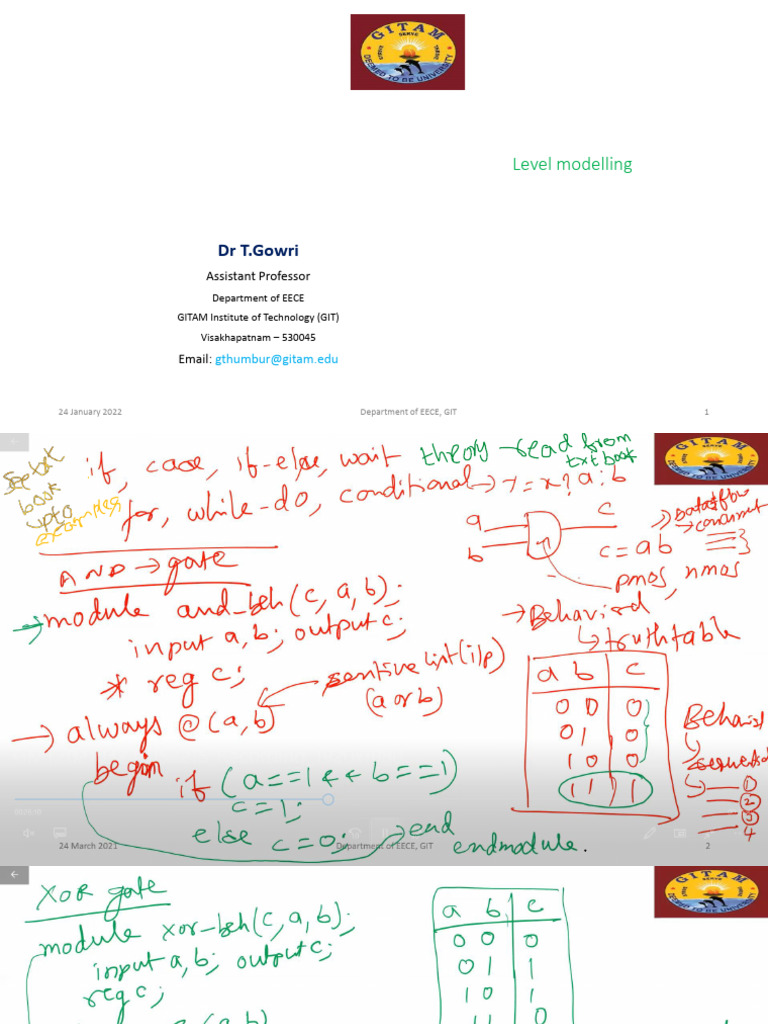 GITAM
DEEMED TO BE UNIVERSITY
Level modelling
Dr T.Gowri
Assistant Professor
Department of EECE
GITAM Institute of Technology (GIT)
Visakhapatnam – 530045
Email: gthumbur@gitam.edu
24 January 2022
Department of EECE, GIT
1
GITAM
See text
book
upto
examples
if, case, if-else, wait
theory read from
txt book
for, while-do, conditional → y = x? a : b
AND → gate
a
b
c
c = ab
→ concurrent
pmos, nmos
→ module and_beh (c, a, b);
input a, b; output c;
* reg c;
sensitive list (i/p)
(a or b)
→ always @ (a, b)
begin
if (a==1 && b==1)
c = 1;
else c = 0;
end
endmodule.
→ Behavioral
↳ truth table
a b c
0 0 0
0 1 0
1 0 0
1 1 1
1
2
3
4
24 March 2021
Department of EECE, GIT
2
XOR gate
module xor-beh (c, a, b);
input a, b; output c;
reg c;
a b c
0 0 0
0 1 1
1 0 1
1 1 0
GITAM